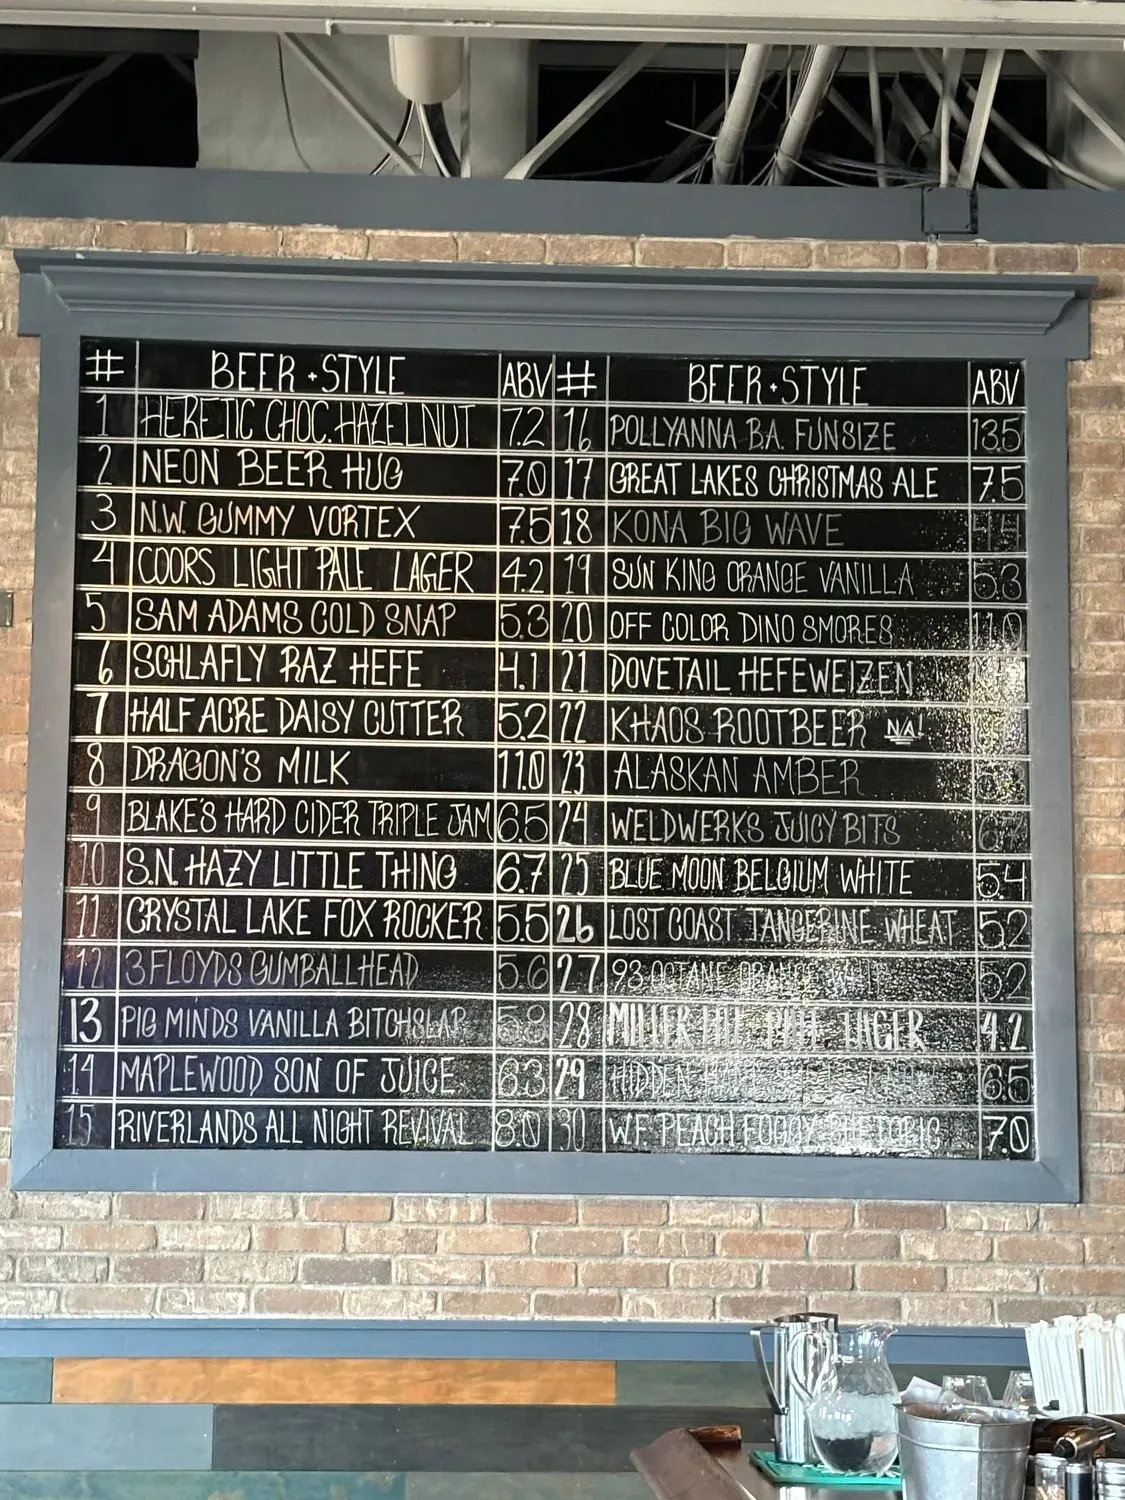 # BEER + STYLE ABV # BEER + STYLE ABV
1 HERETIC CHOC. HAZELNUT 7.2 16 POLLYANNA B.A. FUNSIZE 13.5
2 NEON BEER HUG 7.0 17 GREAT LAKES CHRISTMAS ALE 7.5
3 N.W. GUMMY VORTEX 7.5 18 KONA BIG WAVE
4 COORS LIGHT PALE LAGER 4.2 19 SUN KING ORANGE VANILLA 5.3
5 SAM ADAMS COLD SNAP 5.3 20 OFF COLOR DINO SMORES 11.0
6 SCHLAFLY RAZ HEFE 4.1 21 DOVETAIL HEFEWEIZEN
7 HALF ACRE DAISY CUTTER 5.2 22 KHAOS ROOTBEER N/A!
8 DRAGON'S MILK 11.0 23 ALASKAN AMBER
9 BLAKE'S HARD CIDER TRIPLE JAM 6.5 24 WELDWERKS JUICY BITS 6.7
10 S.N. HAZY LITTLE THING 6.7 25 BLUE MOON BELGIUM WHITE 5.4
11 CRYSTAL LAKE FOX ROCKER 5.5 26 LOST COAST TANGERINE WHEAT 5.2
12 3 FLOYDS GUMBALLHEAD 5.6 27 93 OCTANE 5.2
13 PIG MINDS VANILLA BITCHSLAP 5.8 28 MILLER LITE LAGER 4.2
14 MAPLEWOOD SON OF JUICE 6.3 29 HIDDEN 6.5
15 RIVERLANDS ALL NIGHT REVIVAL 8.0 30 W.F. PEACH FOGGY RHETORIC 7.0